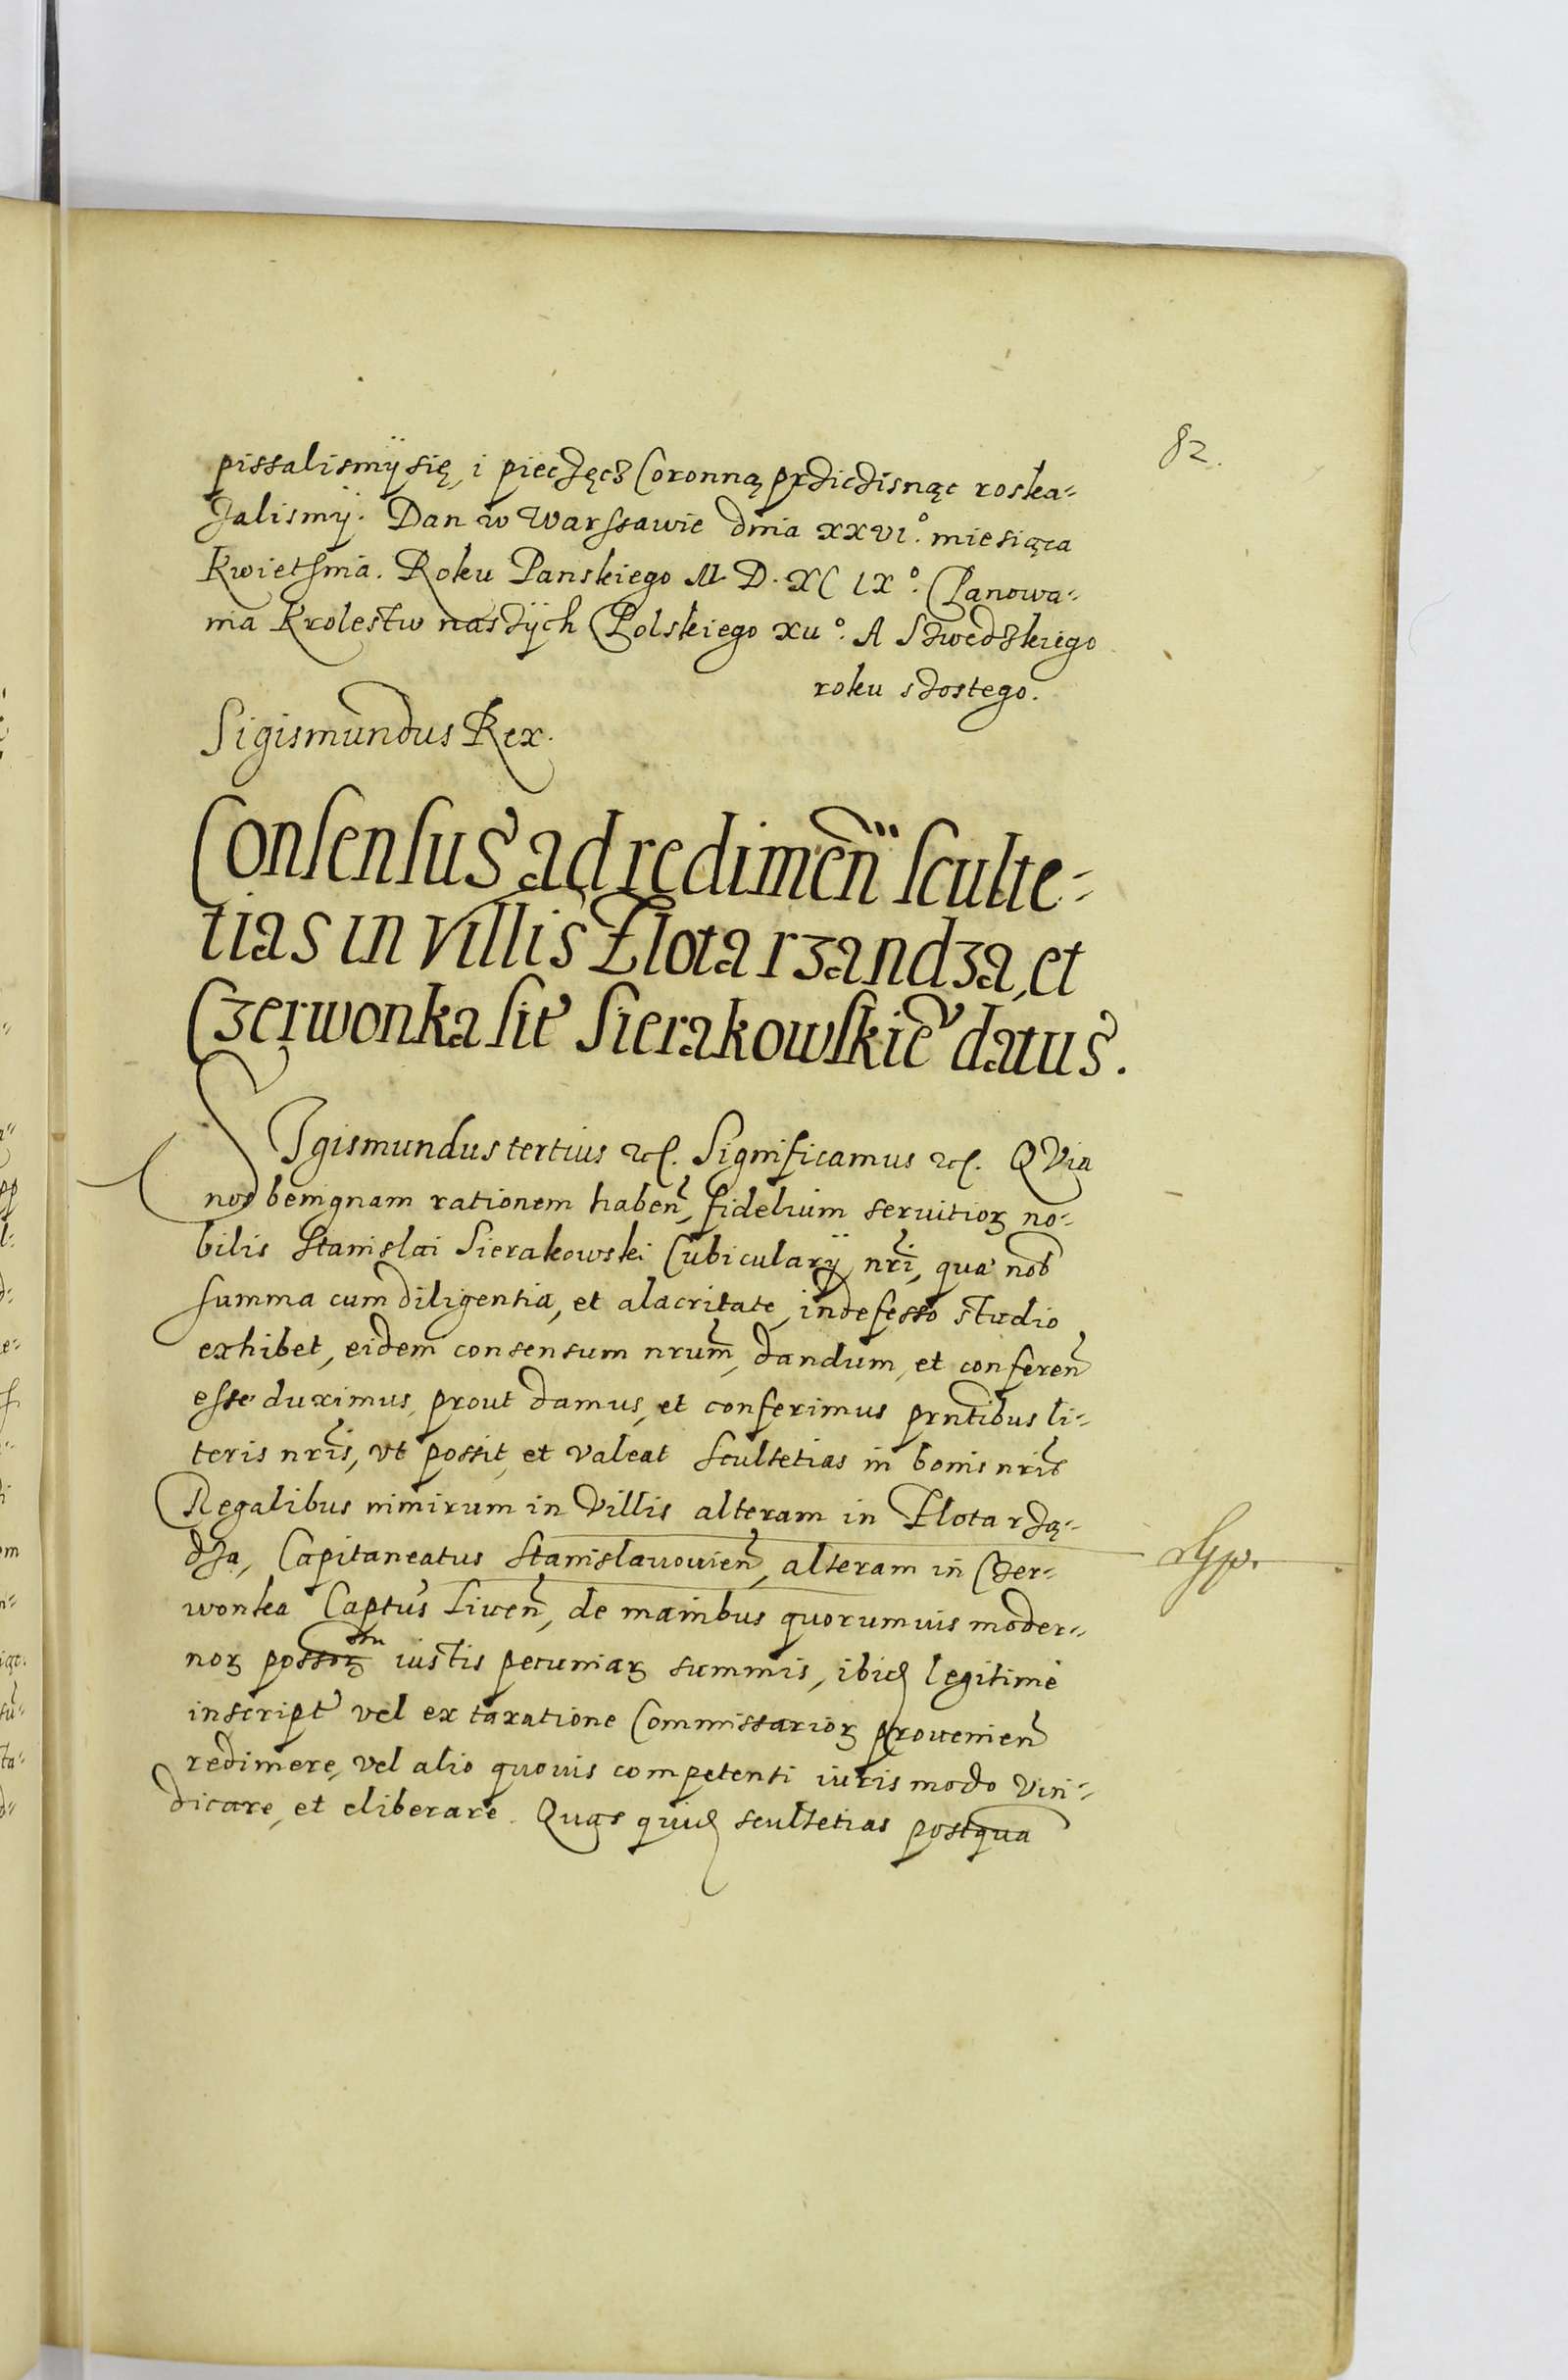 82.
pissalismÿ się, i pieczęcz Coronną przicisnąc roska-
zalismÿ. Dan w Warssawie dnia XXVI°. miesiąca
Kwietnia. Roku Panskiego M. D. XC IX°. Panowa-
nia Krolestw naszÿch Polskiego XII°. A Szwedzkiego
roku szostego.
Sigismundus Rex.
Consensus ad redimen̄ sculte-
tias in villis Zlota rzandza, et
Czerwonka sit Sierakowskie datus.
SIgismundus tertius etc. Significamus etc. QVia
nos benignam rationem haben, fidelium seruitior no-
bilis Stanislai Sierakowski Cubicularÿ nri, qua nob
summa cum diligentia, et alacritate, indefesso studio
exhibet, eidem consensum nrum, dandum, et conferen
esse duximus, prout damus, et conferimus prntibus li-
teris nris, vt possit, et valeat Scultetias in bonis nris
Regalibus nimirum in Villis alteram in Zlota rzą-
dza, Capitaneatus Stanislauouien, alteram in Czer-
wonka Captus Liuen, de manibus quorumuis moder-
nor possor iustis pecuniar summis, ibid legitime
inscript vel ex taxatione Commissarior prouenien
redimere, vel alio quouis competenti iuris modo vin-
dicare, et eliberare. Quas quid scultetias postqua